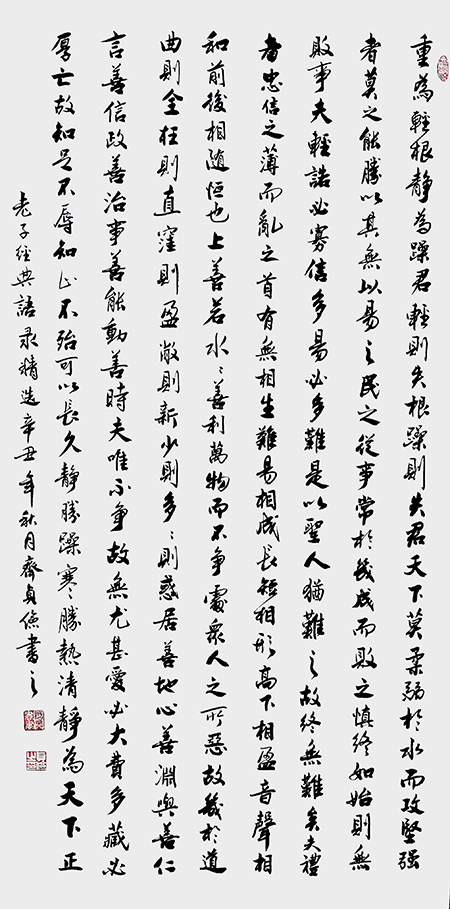 重為輕根靜為躁君輕則失根躁則失君天下莫柔弱於水而攻堅强
者莫之能勝以其無以易之民之從事常於幾成而敗之慎終如始則無
敗事夫輕諾必寡信多易必多難是以聖人猶難之故終無難矣夫禮
者忠信之薄而亂之首有無相生難易相成長短相形高下相盈音聲相
和前後相随恒也上善若水〻善利萬物而不争處衆人之所惡故幾於道
曲則全枉則直窪則盈敝則新少則多〻則惑居善地心善淵與善仁
言善信政善治事善能動善時夫唯不争故無尤甚愛必大費多藏必
厚亡故知足不辱知止不殆可以長久靜勝躁寒〻勝熱清靜為天下正
老子經典語录精选辛丑年秋月齊貞儉書之